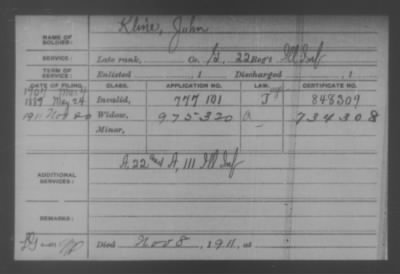 Kline, John
NAME OF SOLDIER:
SERVICE: Late rank, Co. G, 22 Reg't Ill Inf
TERM OF SERVICE: Enlisted , 1 Discharged , 1
DATE OF FILING. CLASS. APPLICATION NO. LAW. CERTIFICATE NO.
1907 Mar 4
1889 May 24 Invalid, 777 101 J 848309
1911 Nov 20 Widow, 975320 734308
Minor,
ADDITIONAL SERVICES: A 22nd A, 111 Ill Inf
REMARKS:
Died Nov 8, 1911, at